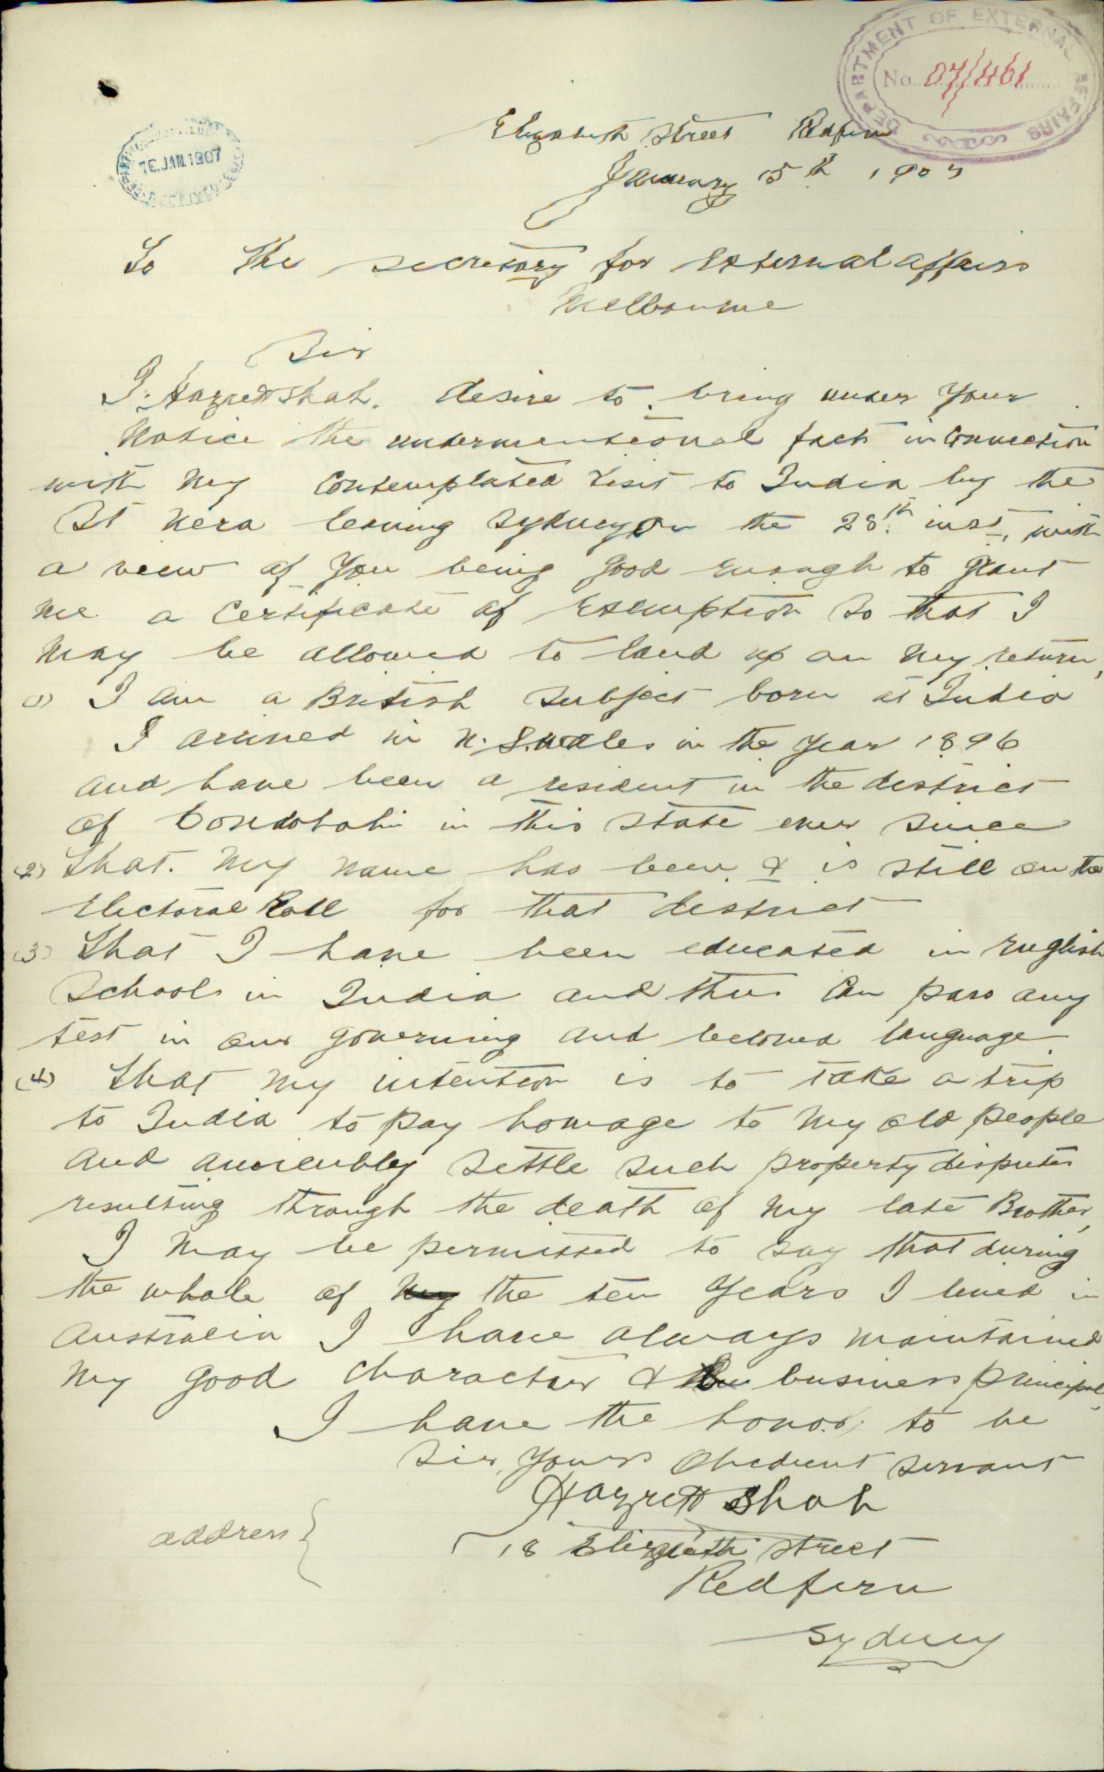 DEPARTMENT OF EXTERNAL AFFAIRS
No. 07/461
16 JAN 1907
Elizabeth Street Redfern
January 15th 1907
To The Secretary for External affairs
Melbourne
Sir
I. Hazrett Shah. desire to bring under your
Notice the undermentioned facts in Connection
with my Contemplated Visit to India by the
St Nera leaving Sydney on the 28th inst, with
a view of you being good enough to grant
me a Certificate of Exemption so that I
May be allowed to land up on my return,
(1) I am a British subject born at India
I arrived in N. S. Wales in the year 1896
and have been a resident in the district
of Condobolin in this state ever since
(2) That. my name has been & is still on the
Electoral Roll for that district
(3) That I have been educated in English
Schools in India and thus Can pass any
test in our governing and beloved language
(4) That my intention is to take a trip
to India to pay homage to my old people
and amicably settle such property disputes
resulting through the death of my late Brother,
I may be permitted to say that during
the whole of my the ten years I lived in
Australia I have always maintained
my good character & business principal
I have the honor to be
Sir, Your Obedient servant
Hazrett Shah
address } 18 Elizabeth Street
Redfern
Sydney